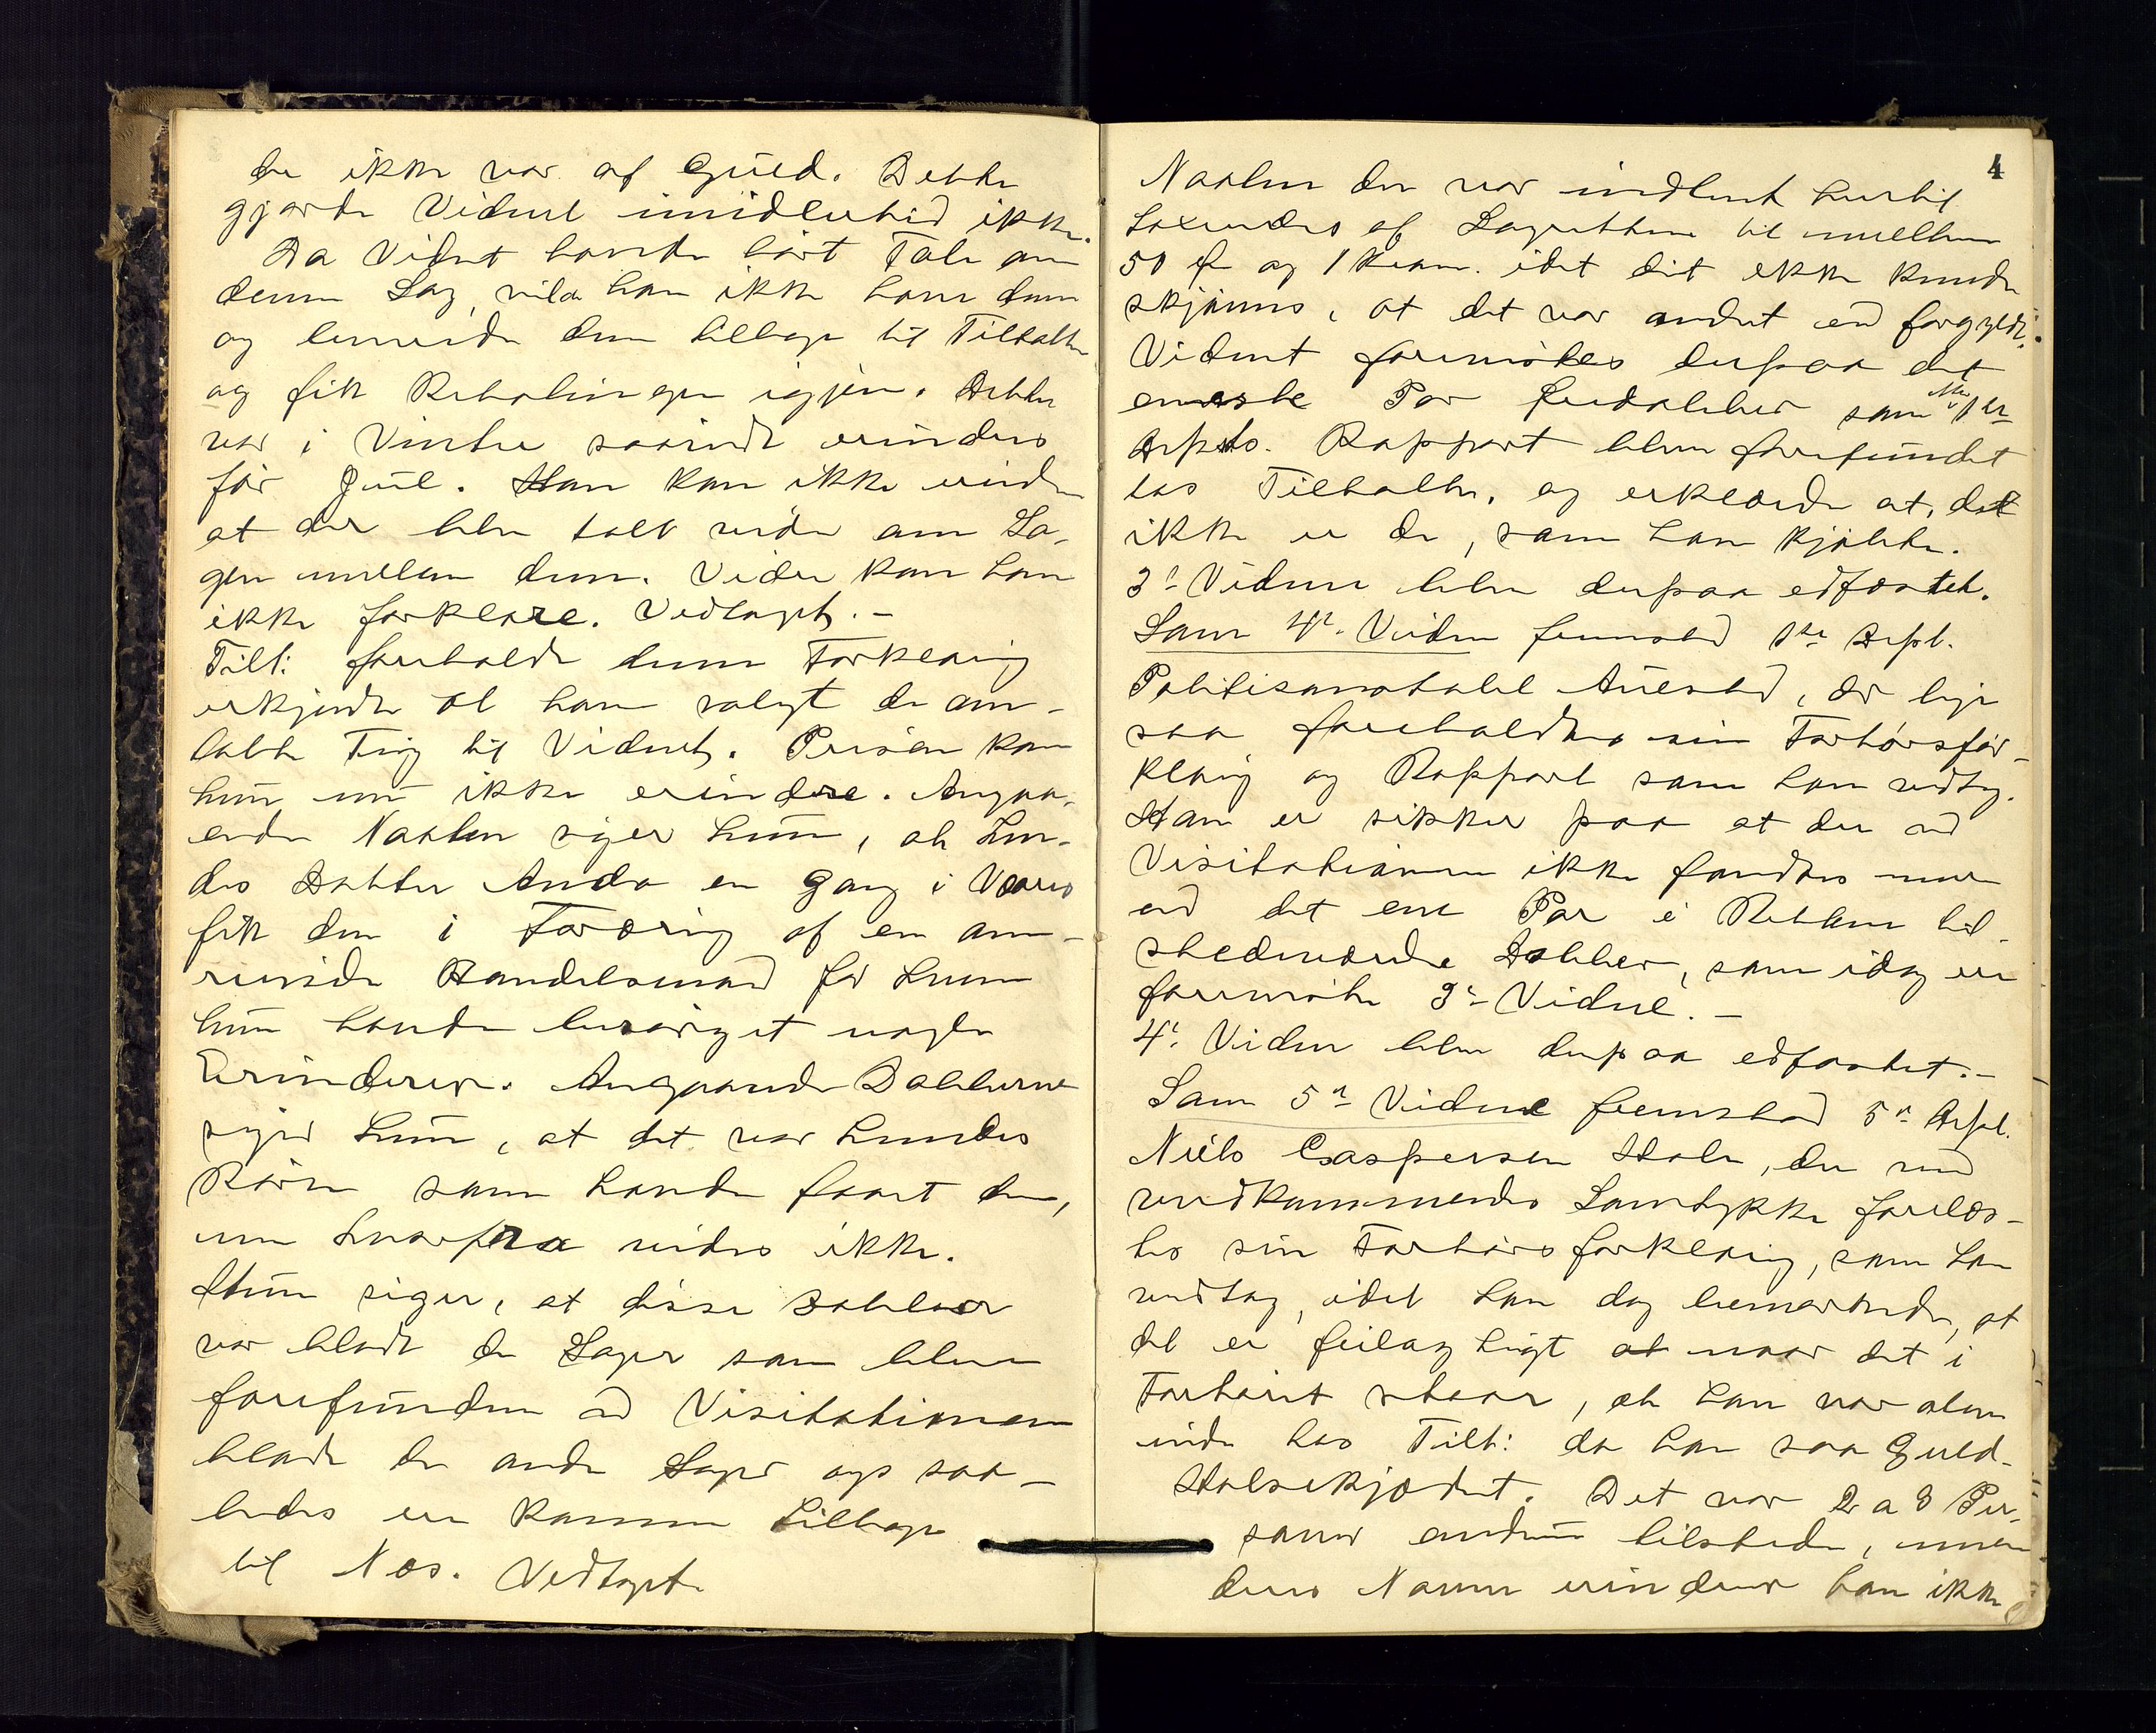 de ikke var af Guld. Dette
gjorde Vidnet imidlertid ikke.
Da Vidnet havde hørt Tale om
denne Sag, vilde han ikke have dem
og leverede dem tilbage til Tiltalte
og fik Betalingen igjen. Dette
var i Vinter saavidt erindres
før Juul. Han kan ikke erindre
at der blev talt videre om Sa-
gen mellem dem. Videre kan han
ikke forklare. Vedtaget. –
Tilt: foreholdt denne Forklaring
erkjendte at have solgt de om-
talte Ting til Vidnet. Prisen kan
hun nu ikke erindre. Angaa-
ende Naalen siger hun, at hen-
des Datter Anda en Gang i Vaares
fik den i Foræring af en om-
reisende Handelsmand for hvem
hun havde besørget nogle
Erinderer. Angaaende Dobberne
siger hun, at det var hendes
Børn som havde faaet dem,
men hvorfra vides ikke.
Hun siger, at disse Dobber
var blandt de Sager som blev
forefunden ved Visitationen
blandt de andre Sager og saa-
ledes er kommen tilbage
til Næs. Vedtaget
4
Naalen der var indleveret hertil
taxeredes af Lagretten til mellem
50 Øre og 1 Krone. idet det ikke kunde
skjønnes, at det var andet end forgyldt.
Vidnet foreviistes derpaa det
eneste Par Guldobber som efter 1ste
Arfsts. Rapport blev forefundet
hos Tiltalte, og erklærede at, det
ikke er de, som han kjøbte.
3die Vidne blev derpaa edfæstet.
Som 4de Vidne fremstod 1ste Arfst.
Politikonstabel Auestad, der lige-
saa foreholdtes sin Forhørsfor-
klaring og Rapport som han vedtog.
Han er sikker paa at der ved
Visitationen ikke fandtes mere
end det ene Par i Retten til-
stedeværende Dobber, som idag er
forevist 3die Vidne. –
4de Vidne blev derpaa edfæstet. –
Som 5te Vidne fremstod 5te Arfst.
Niels Caspersen Hole, der med
vedkommendes Samtykke forelæs-
tes sin Forhørsforklaring, som han
vedtog, idet han dog bemærkede, at
det er feilagtigt at naar det i
Forhøret staar, at han var alene
inde hos Tilt: da han saa Guld-
Halskjædet. Det var 2 a 3 Per-
soner endnu tilstede, men
deres Navne erindrer han ikke